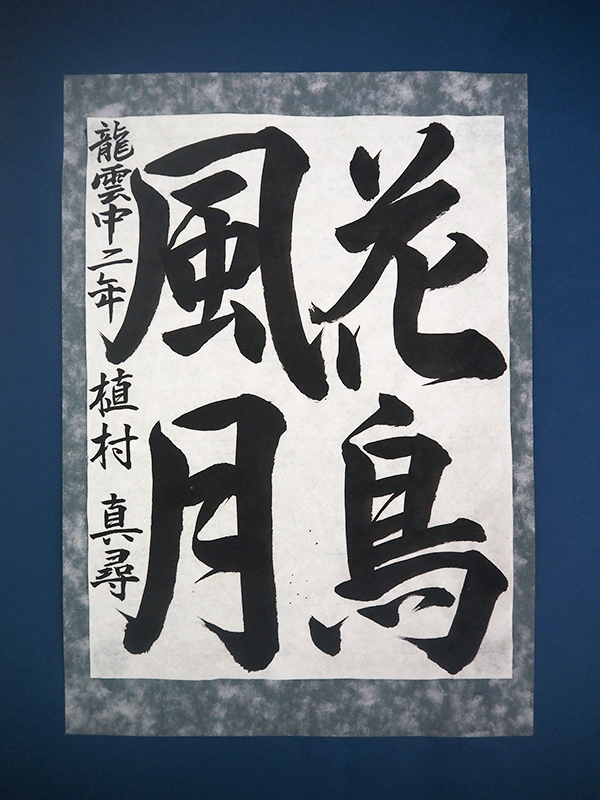 花鳥
風月
龍雲中二年 植村 真尋